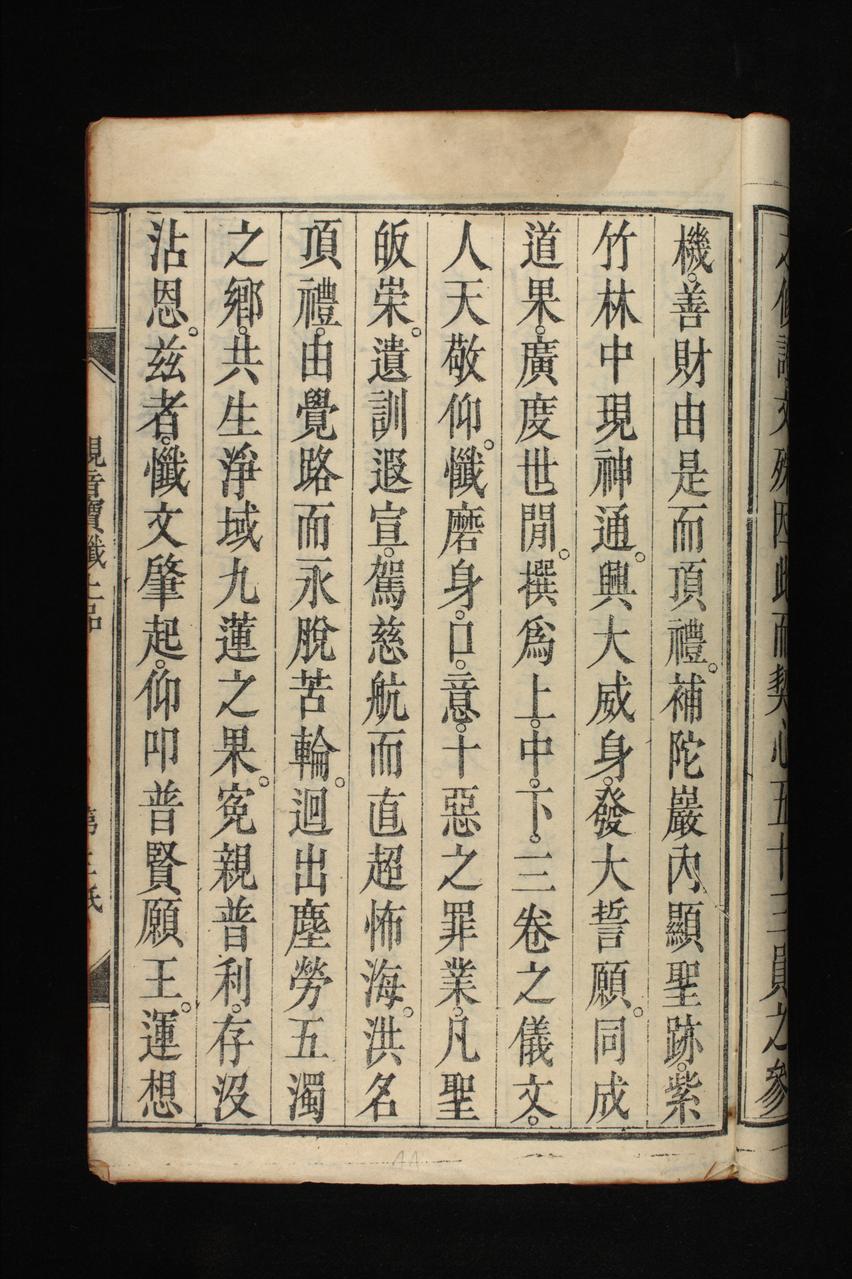 因此而契心五十三員之參
機。善財由是而頂禮。補陀巖內顯聖跡。紫
竹林中現神通。興大威身。發大誓願。同成
道果。廣度世閒。撰爲上。中。下。三卷之儀文。
人天敬仰。懺磨身。口。意。十惡之罪業。凡聖
皈荣。遺訓遐宣。駕慈航而直超怖海。洪名
頂禮。由覺路而永脫苦輪。迴出塵勞五濁
之鄉。共生淨域九蓮之果。寃親普利。存沒
沾恩。兹者。懺文肇起。仰叩普賢願王。運想
觀音寶懺上品